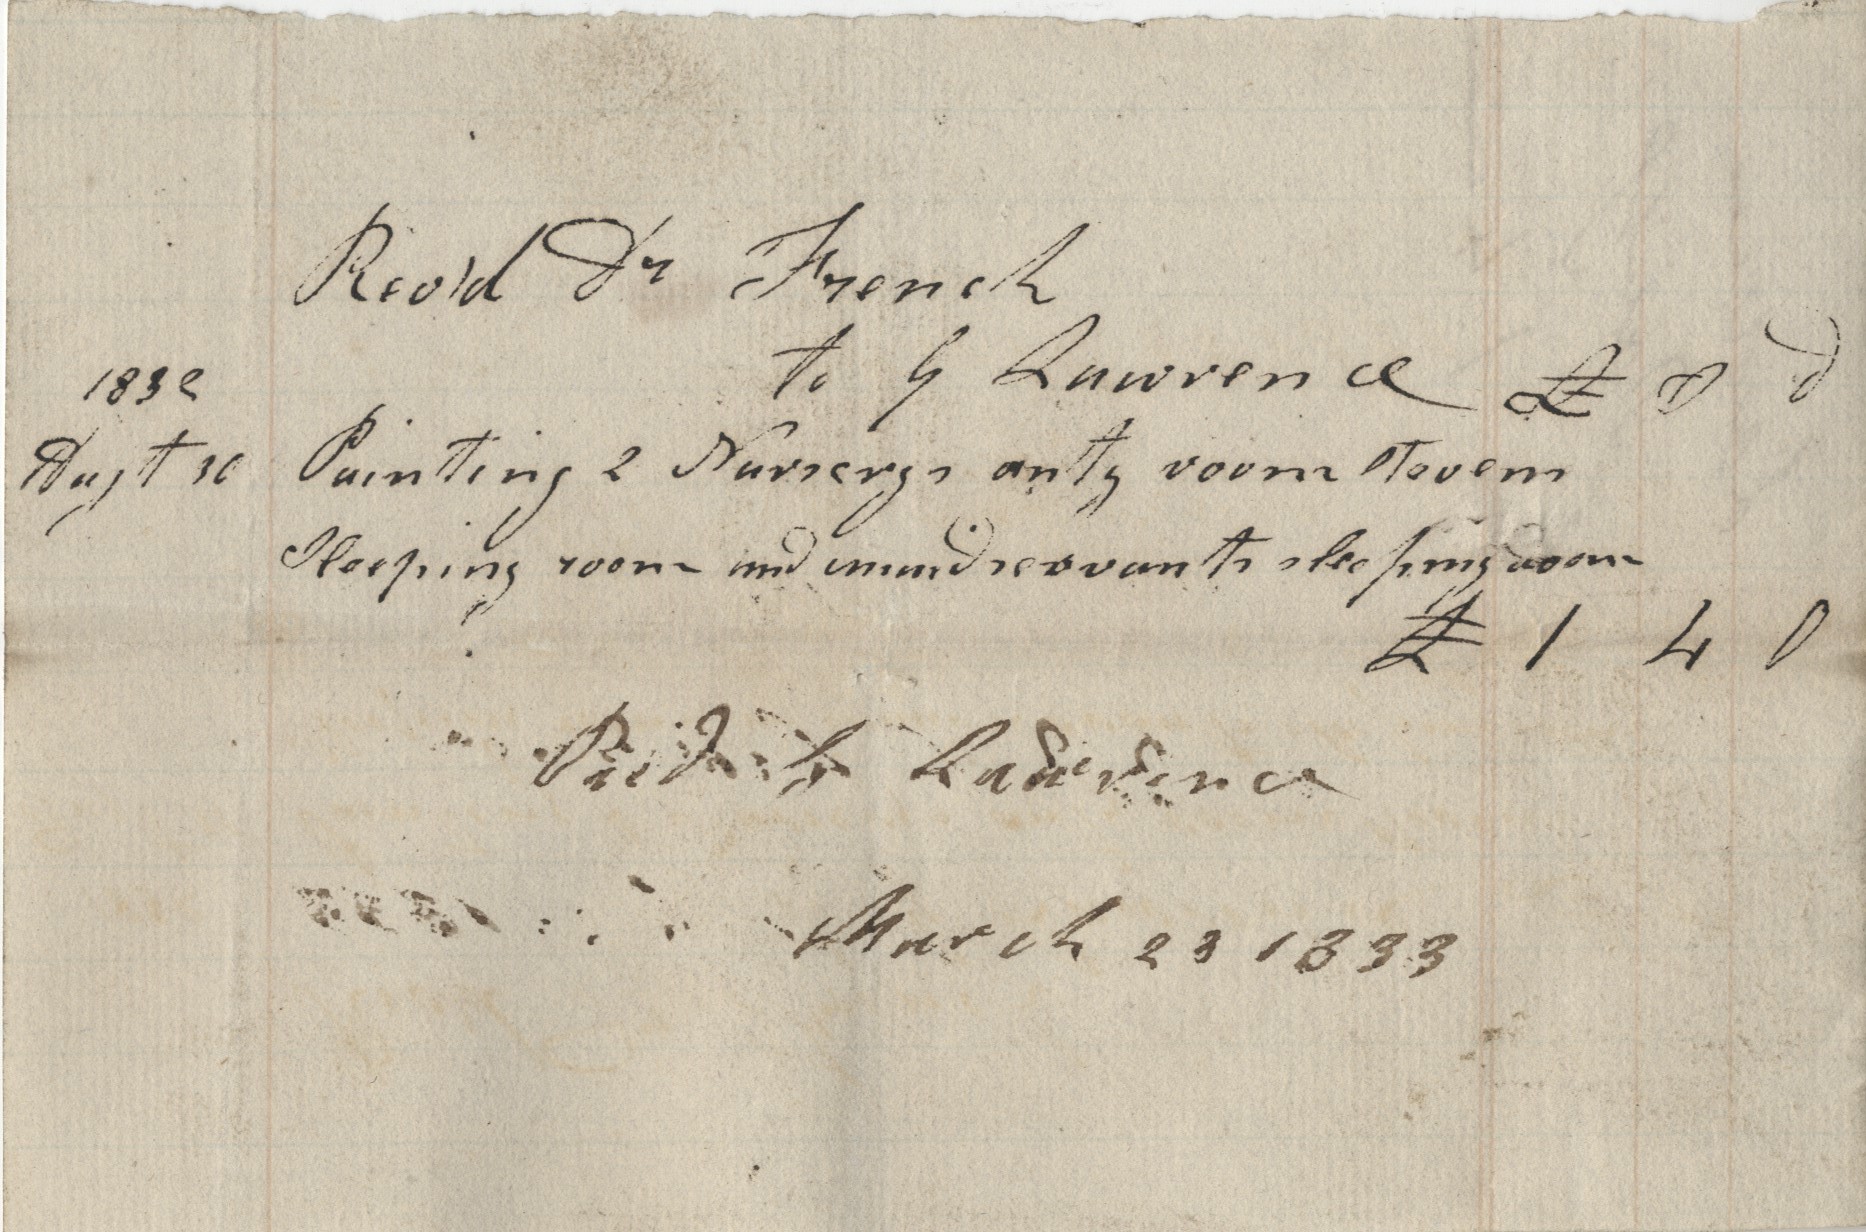 Rev'd Dr French
to G Lawrence £ s d
1832
Augt 30 Painting 2 Nurserys anty room Stevens
Sleeping room and maid servants sleeping room
£ 1 4 0
Paid G Lawrence
March 23 1833